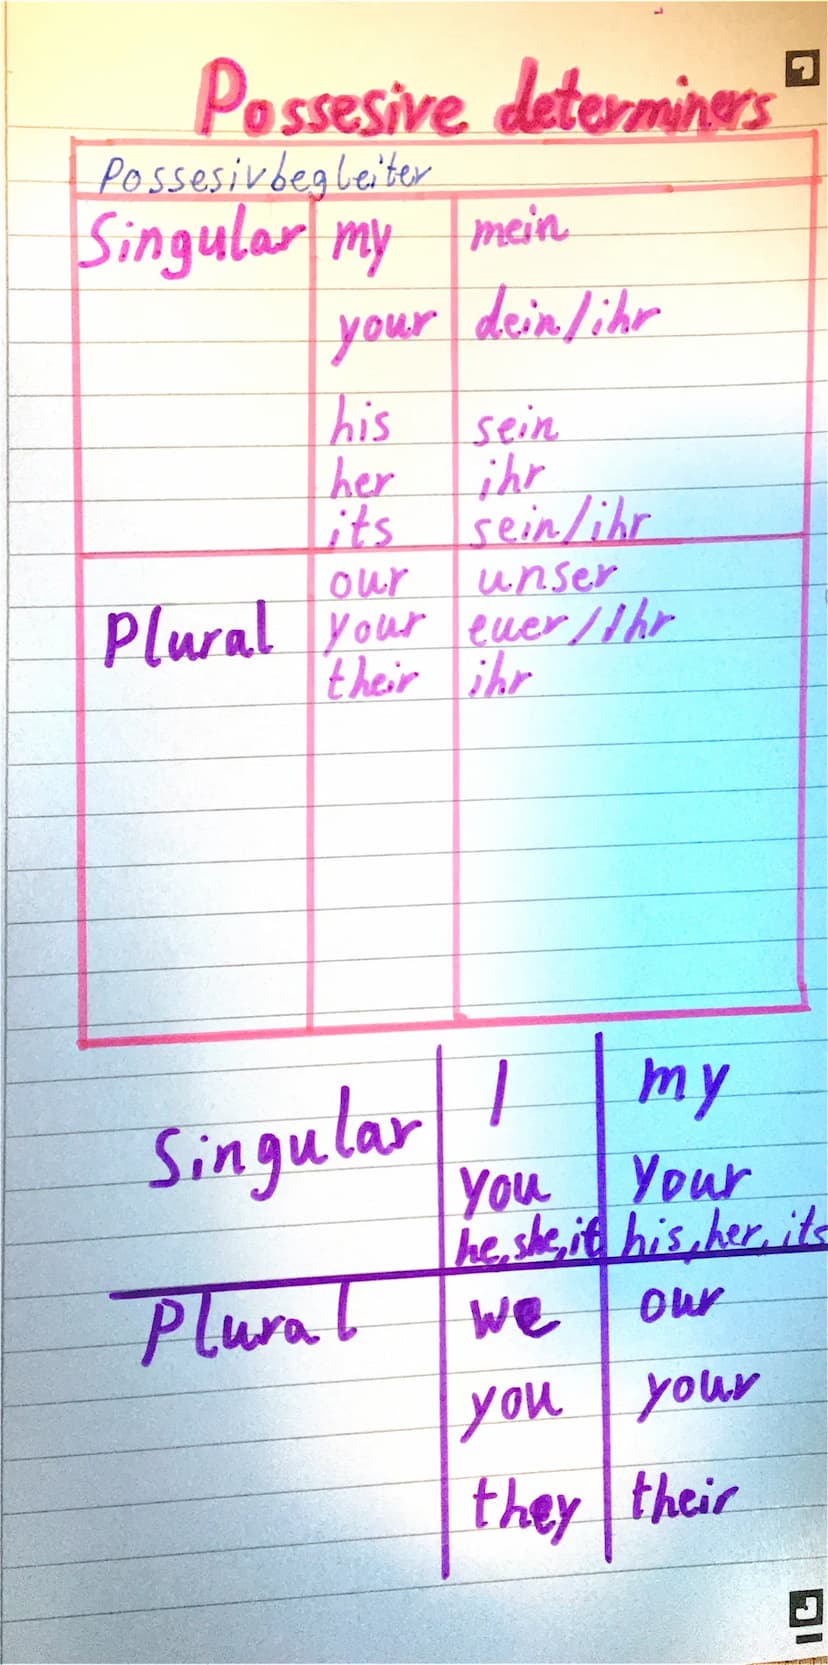 Possesive determiners
Possesivbegleiter
Singular my mein
your dein/ihr
his sein
her ihr
its sein/ihr
our unser
Plural your euer/Ihr
their ihr
Singular I my
you your
he, she, it his, her, its
Plural we our
you your
they their